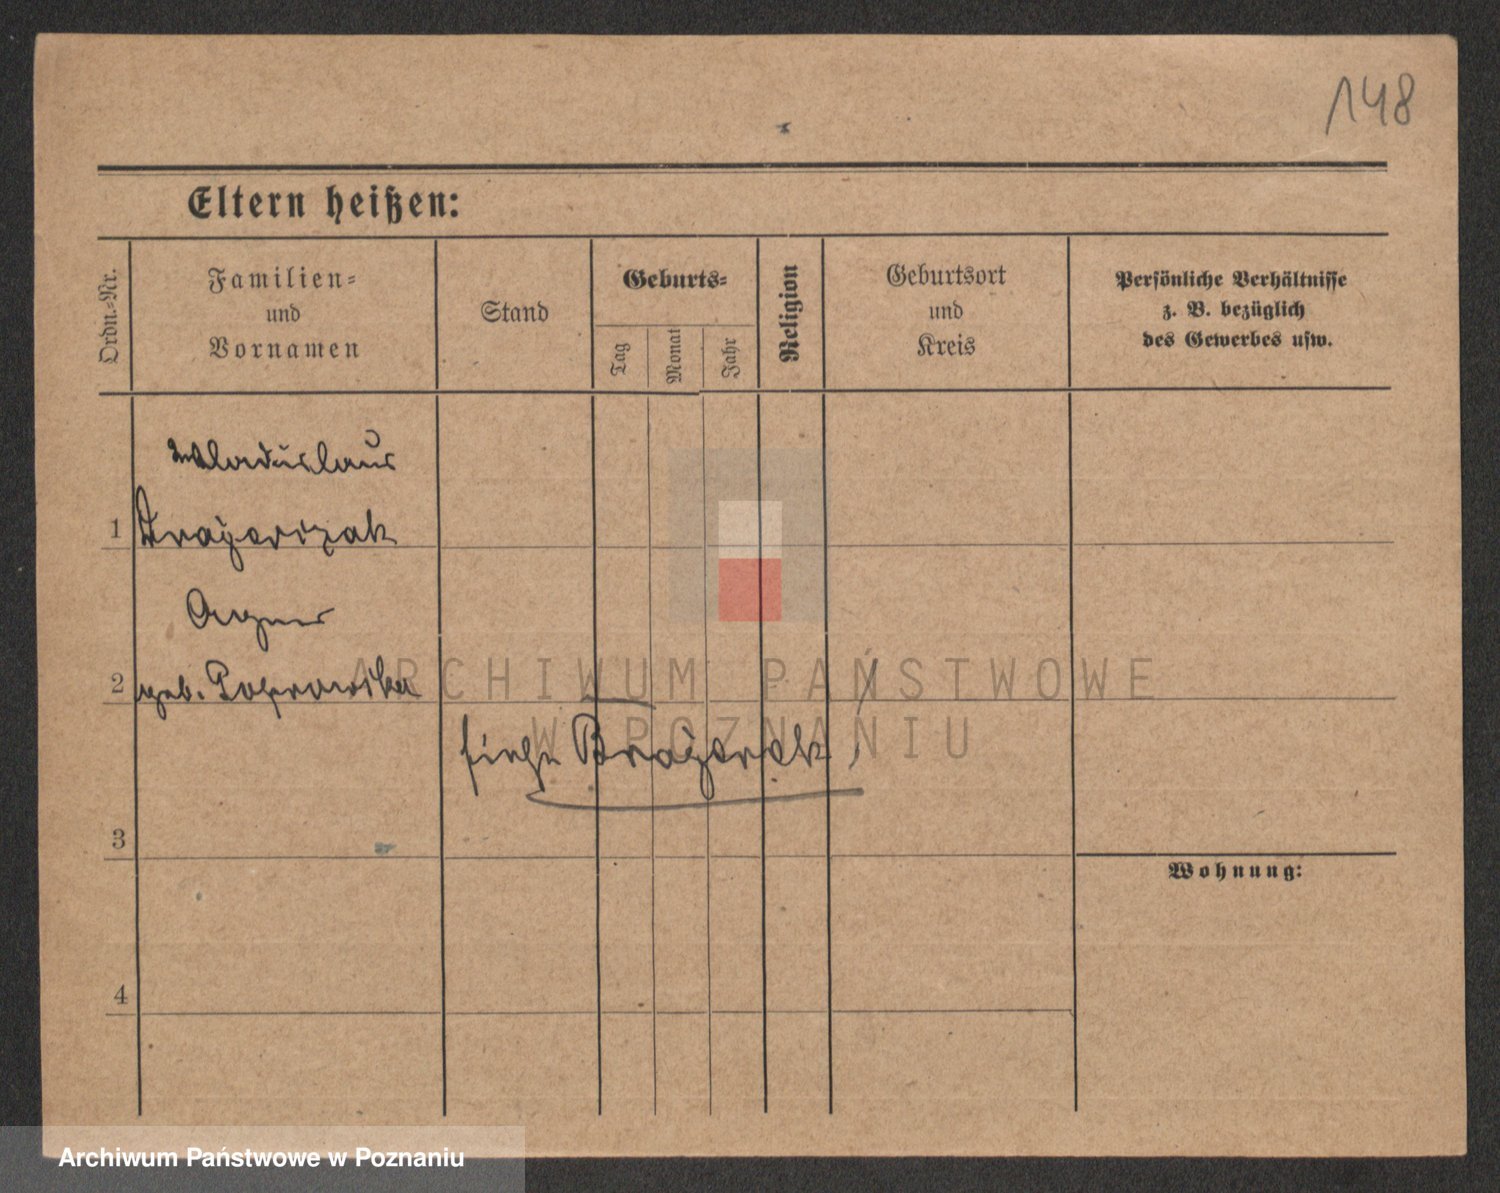 148
Eltern heißen:
Ordn.-Nr.
Familien-
und
Vornamen
Stand
Geburts-
Tag
Monat
Jahr
Religion
Geburtsort
und
Kreis
Persönliche Verhältnisse
z. B. bezüglich
des Gewerbes usw.
Wladislaus
1
Agnes
2 geb.
ARCHIWUM PAŃSTWOWE
W POZNANIU
siehe
3
Wohnung:
4
Archiwum Państwowe w Poznaniu